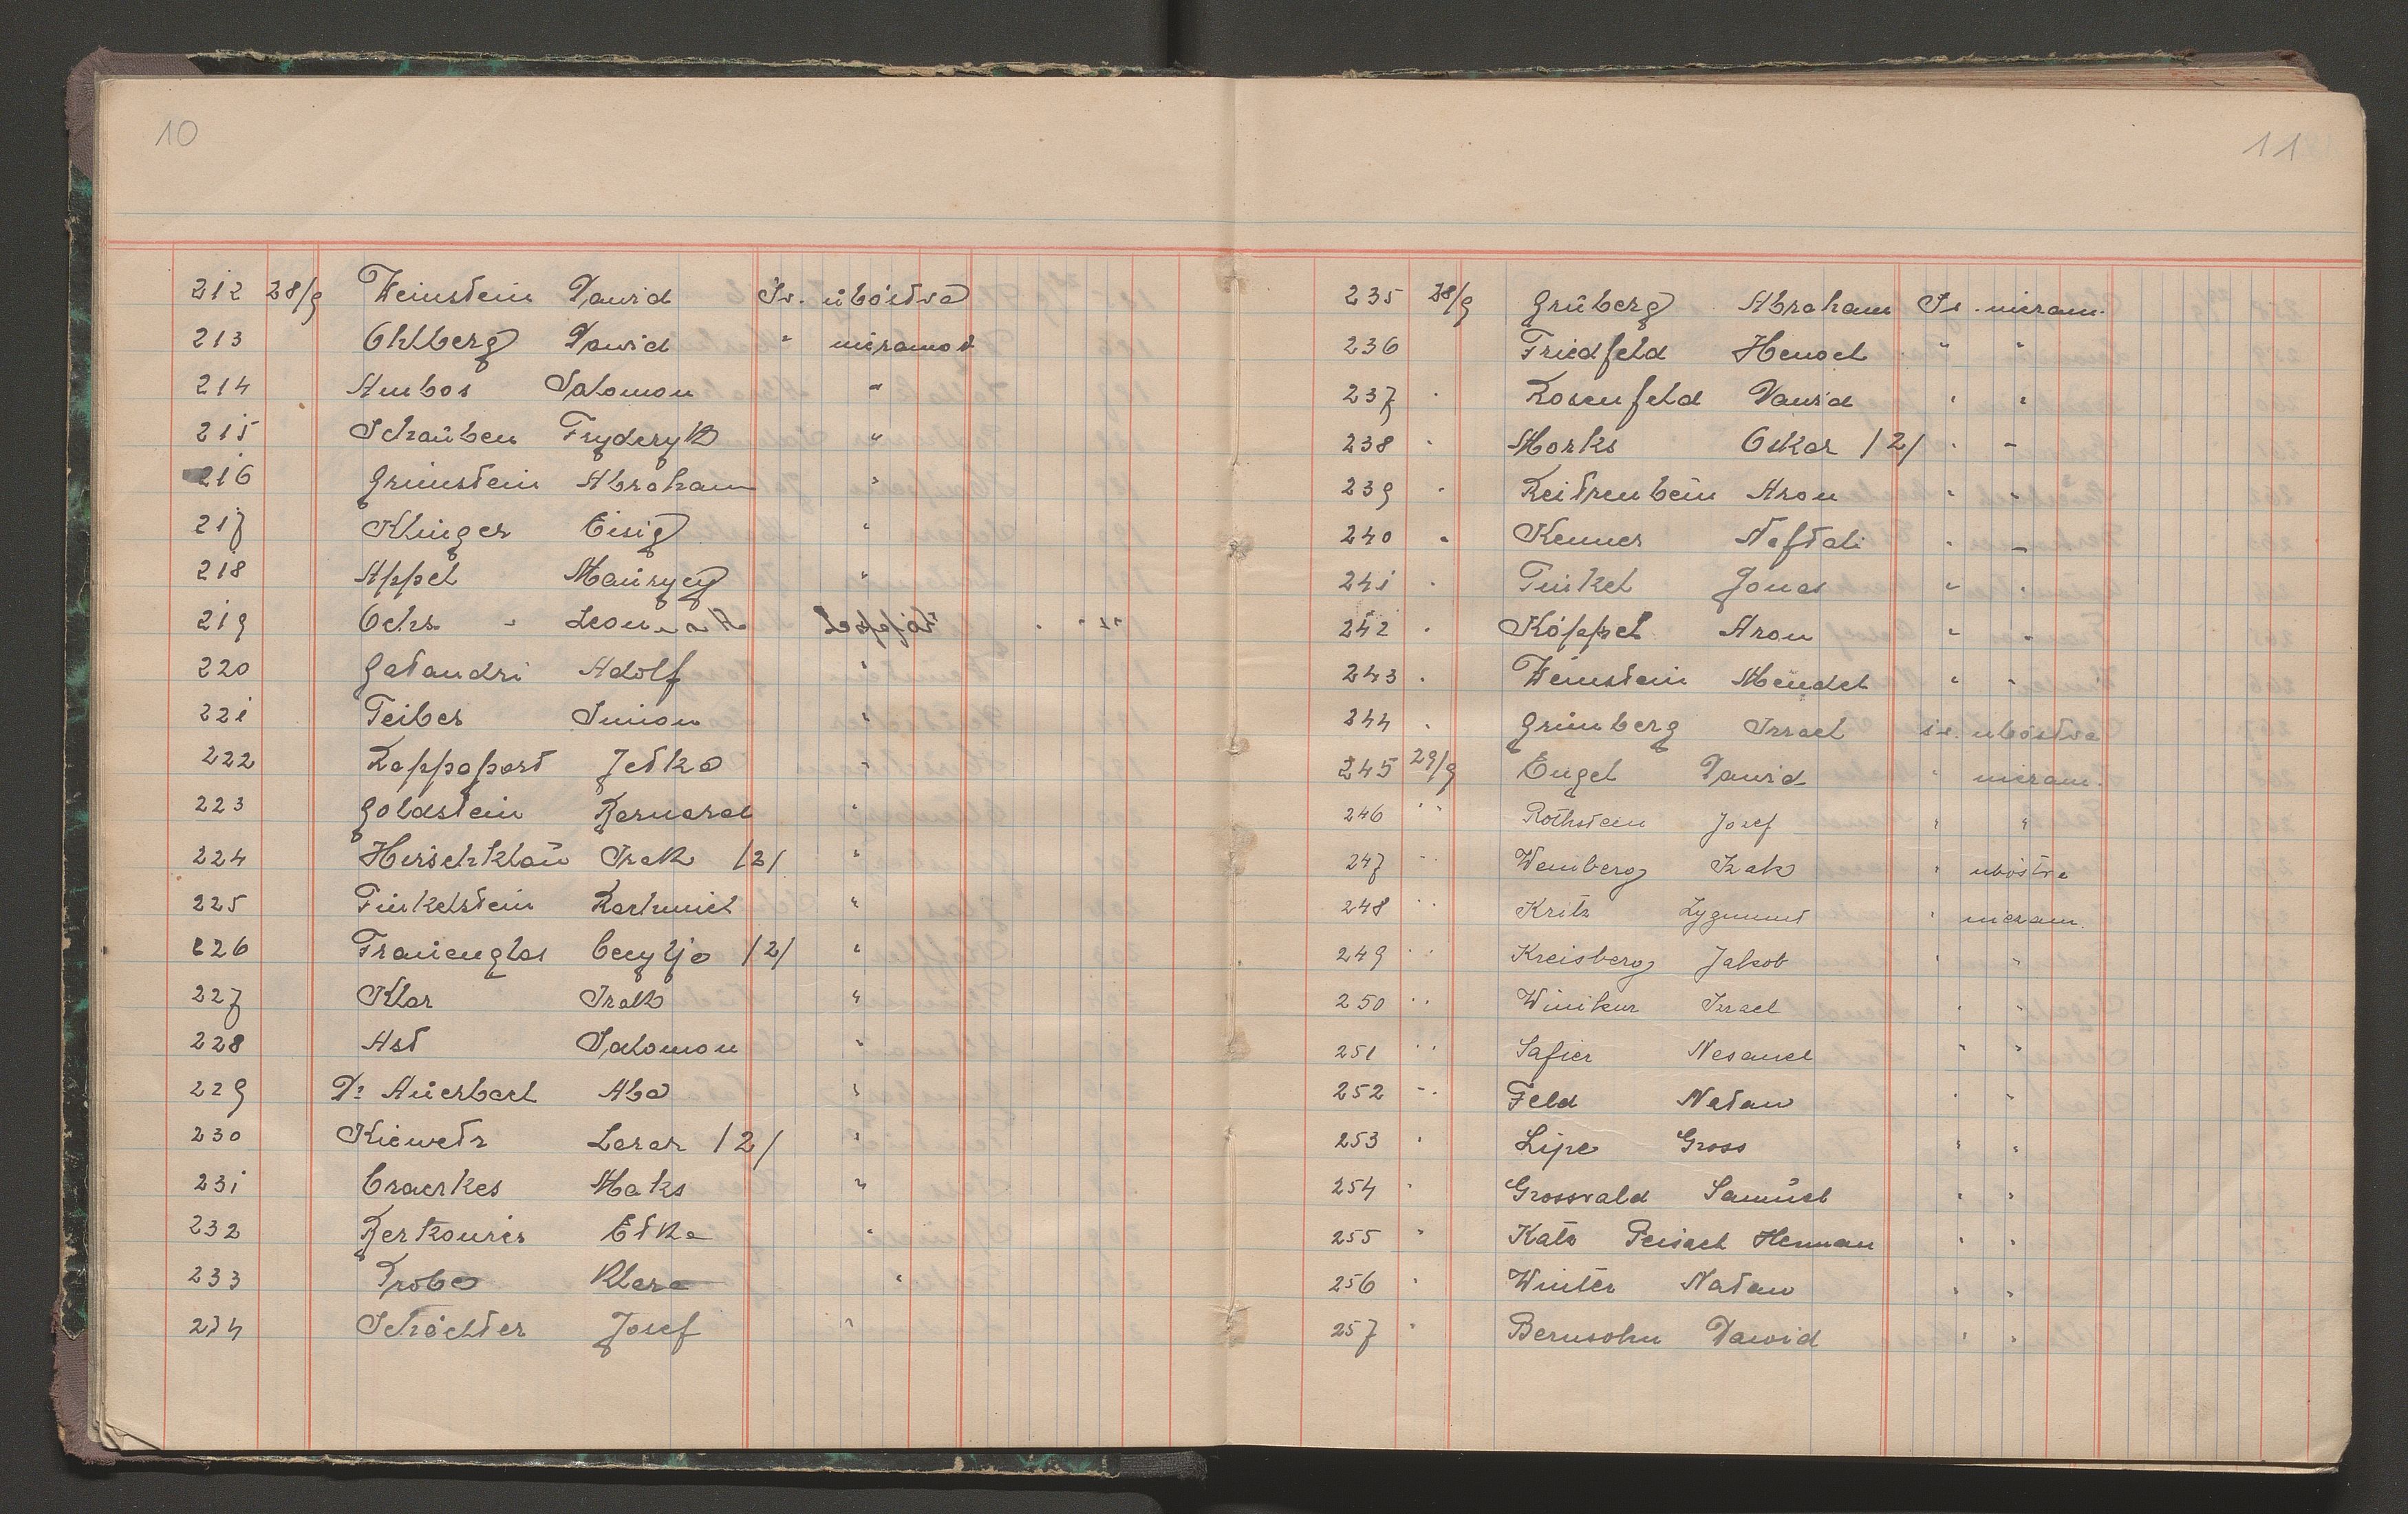 10
212 28/9 Weinstein Dawid Św. ubóstva
213 Ohlberg Dawid " nieramoż
214 Ambos Salomon "
215 Schauben Fryderyk "
216 Grünstein Abraham "
217 Klinger Eisig "
218 Appel Maurycy "
219 Ochs
220 Adolf "
221 Teiber Simion "
222 Rappaport Jetka "
223 Goldstein Bernard "
224 Hirschklau Izak /2/ "
225 Finkelstein "
226 Frauenglas Cecylja /2/ "
227 Klar Izak "
228 Ast Salomon "
229 Dr Auerbach Aba "
230 Lazar /2/ "
231 Maks "
232 Etka "
233 Klara "
234 Schächter Josef "
11
235 28/9 Grüberg Abraham Św. nieram.
236 Friedfeld Henoch " "
237 " Rosenfeld Dawid " "
238 " Morks Oskar /2/ " "
239 " Aron " "
240 " Kenner Naftali " "
241 " Finkel Jonas " "
242 " Köppel Aron " "
243 " Weinstein Mendel " "
244 " Grünberg Izrael św. ubóstva
245 29/9 Engel Dawid " nieram.
246 " " Rothstein Josef " "
247 " " Weinberg Izak " ubóstva
248 " " Kritz Zygmunt " nieram.
249 " " Kreisberg Jakob " "
250 " " Winikur Izrael " "
251 " " Safier Nesanel " "
252 " " Feld Natan " "
253 " Lipe Gross " "
254 " Grossvald Samuel " "
255 " Katz Peisach Herman " "
256 " Winter Natan " "
257 " Bernsohn Dawid " "